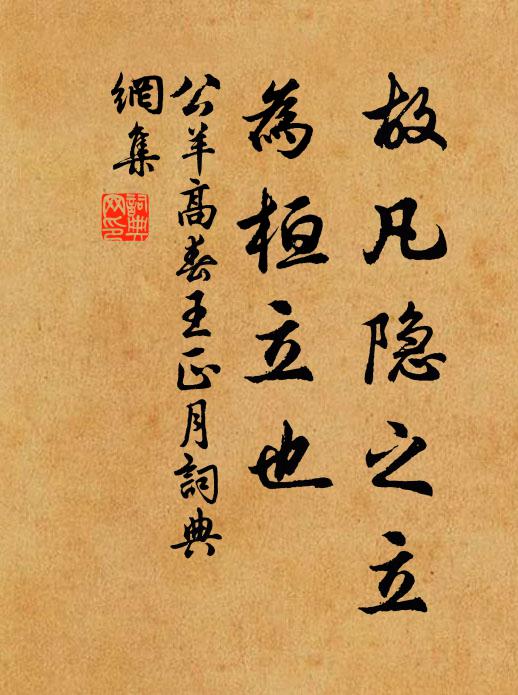 故凡隐之立
為桓立也
公羊高春王正月詞典
網集
詞典
网印